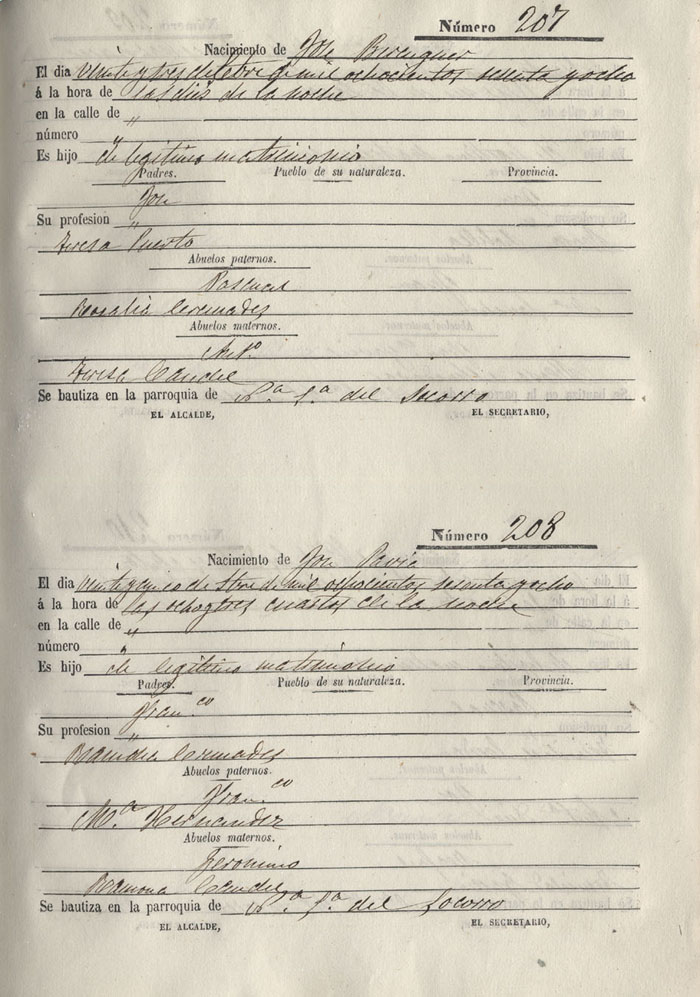 Número 207
Nacimiento de José Berenguer
El dia veinte y tres de 8bre de mil ochocientos sesenta y ocho
á la hora de las diez de la noche
en la calle de "
número "
Es hijo de legitimo matrimonio
Padres. Pueblo de su naturaleza. Provincia.
José
Su profesion "
Teresa Puerto
Abuelos paternos.
Pascual
Rosalia Cremades
Abuelos maternos.
Ant.º
Teresa Candel
Se bautiza en la parroquia de N.ª S.ª del Socorro
EL ALCALDE, EL SECRETARIO,
Número 208
Nacimiento de José Pavia
El dia veinte y cinco de de mil ochocientos sesenta y ocho
á la hora de las ocho y tres cuartos de la noche
en la calle de "
número "
Es hijo de legitimo matrimonio
Padres. Pueblo de su naturaleza. Provincia.
Fran.co
Su profesion "
Cremades
Abuelos paternos.
Fran.co
M.ª Hernandez
Abuelos maternos.
Geronimo
Ramona Candel
Se bautiza en la parroquia de N.ª S.ª del Socorro
EL ALCALDE, EL SECRETARIO,